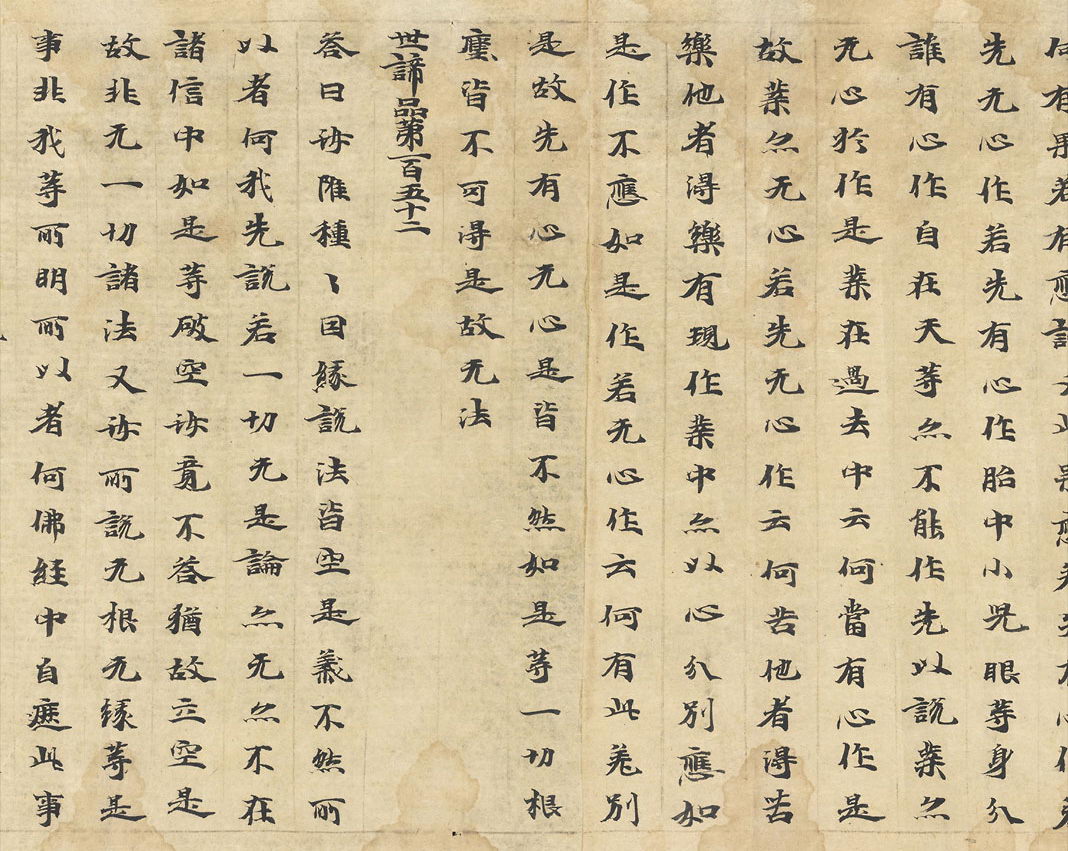 何有果若有應
先无心作若先有心作胎中小兒眼等身分
誰有心作自在天等亦不能作先以說業亦
无心於作是業在過去中云何當有心作是
故業亦无心若先无心作云何苦他者得苦
樂他者得樂有現作業中亦以心分別應如
是作不應如是作若无心作云何有此差別
是故先有心无心是皆不然如是等一切根
塵皆不可得是故无法
世諦品第一百五十二
答曰汝雖種〻因緣說法皆空是義不然所
以者何我先說若一切无是論亦无亦不在
諸信中如是等破空汝竟不答猶故立空是
故非无一切諸法又汝所說无根无緣等是
事非我等所明所以者何佛經中自遮此事